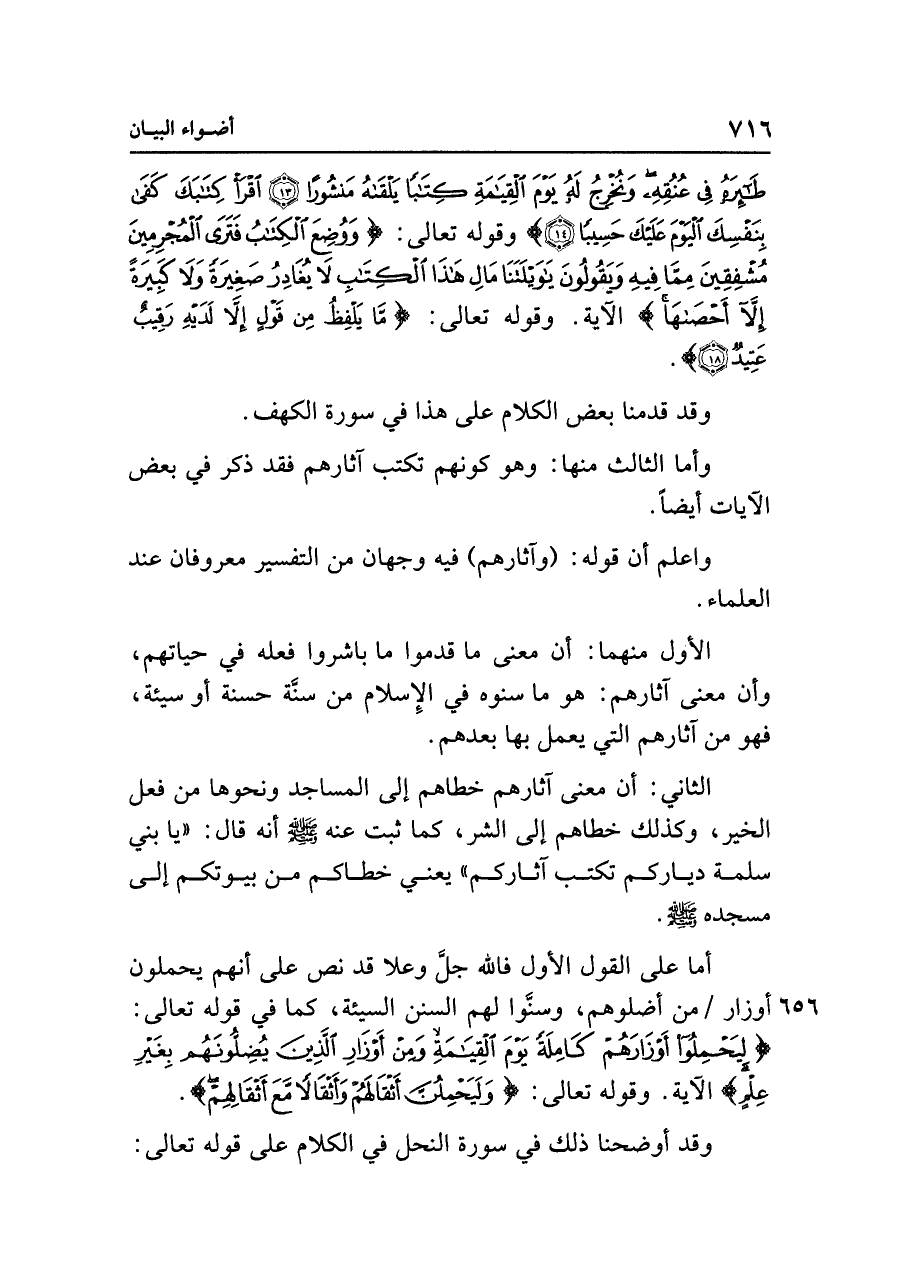 ٧١٦ أضـواء البيـان
طَٰٓئِرَهُۥ فِى عُنُقِهِۦۖ وَنُخْرِجُ لَهُۥ يَوْمَ ٱلْقِيَٰمَةِ كِتَٰبًا يَلْقَىٰهُ مَنشُورًا ۝١٣ ٱقْرَأْ كِتَٰبَكَ كَفَىٰ
بِنَفْسِكَ ٱلْيَوْمَ عَلَيْكَ حَسِيبًا ۝١٤﴾ وقوله تعالى: ﴿وَوُضِعَ ٱلْكِتَٰبُ فَتَرَى ٱلْمُجْرِمِينَ
مُشْفِقِينَ مِمَّا فِيهِ وَيَقُولُونَ يَٰوَيْلَتَنَا مَالِ هَٰذَا ٱلْكِتَٰبِ لَا يُغَادِرُ صَغِيرَةً وَلَا كَبِيرَةً
إِلَّآ أَحْصَىٰهَاۚ﴾ الآية. وقوله تعالى: ﴿مَّا يَلْفِظُ مِن قَوْلٍ إِلَّا لَدَيْهِ رَقِيبٌ
عَتِيدٌ ۝١٨﴾.
وقد قدمنا بعض الكلام على هذا في سورة الكهف.
وأما الثالث منها: وهو كونهم تكتب آثارهم فقد ذكر في بعض
الآيات أيضاً.
واعلم أن قوله: (وآثارهم) فيه وجهان من التفسير معروفان عند
العلماء.
الأول منهما: أن معنى ما قدموا ما باشروا فعله في حياتهم،
وأن معنى آثارهم: هو ما سنوه في الإِسلام من سنَّة حسنة أو سيئة،
فهو من آثارهم التي يعمل بها بعدهم.
الثاني: أن معنى آثارهم خطاهم إلى المساجد ونحوها من فعل
الخير، وكذلك خطاهم إلى الشر، كما ثبت عنه ﷺ أنه قال: «يا بني
سلمـة ديـاركـم تكتـب آثـاركـم» يعنـي خطـاكـم مـن بيـوتكـم إلـى
مسجده ﷺ.
أما على القول الأول فالله جلَّ وعلا قد نص على أنهم يحملون
٦٥٦ أوزار / من أضلوهم، وسنَّوا لهم السنن السيئة، كما في قوله تعالى:
﴿لِيَحْمِلُوٓا۟ أَوْزَارَهُمْ كَامِلَةً يَوْمَ ٱلْقِيَٰمَةِۙ وَمِنْ أَوْزَارِ ٱلَّذِينَ يُضِلُّونَهُم بِغَيْرِ
عِلْمٍۗ﴾ الآية. وقوله تعالى: ﴿وَلَيَحْمِلُنَّ أَثْقَالَهُمْ وَأَثْقَالًا مَّعَ أَثْقَالِهِمْۖ﴾.
وقد أوضحنا ذلك في سورة النحل في الكلام على قوله تعالى: